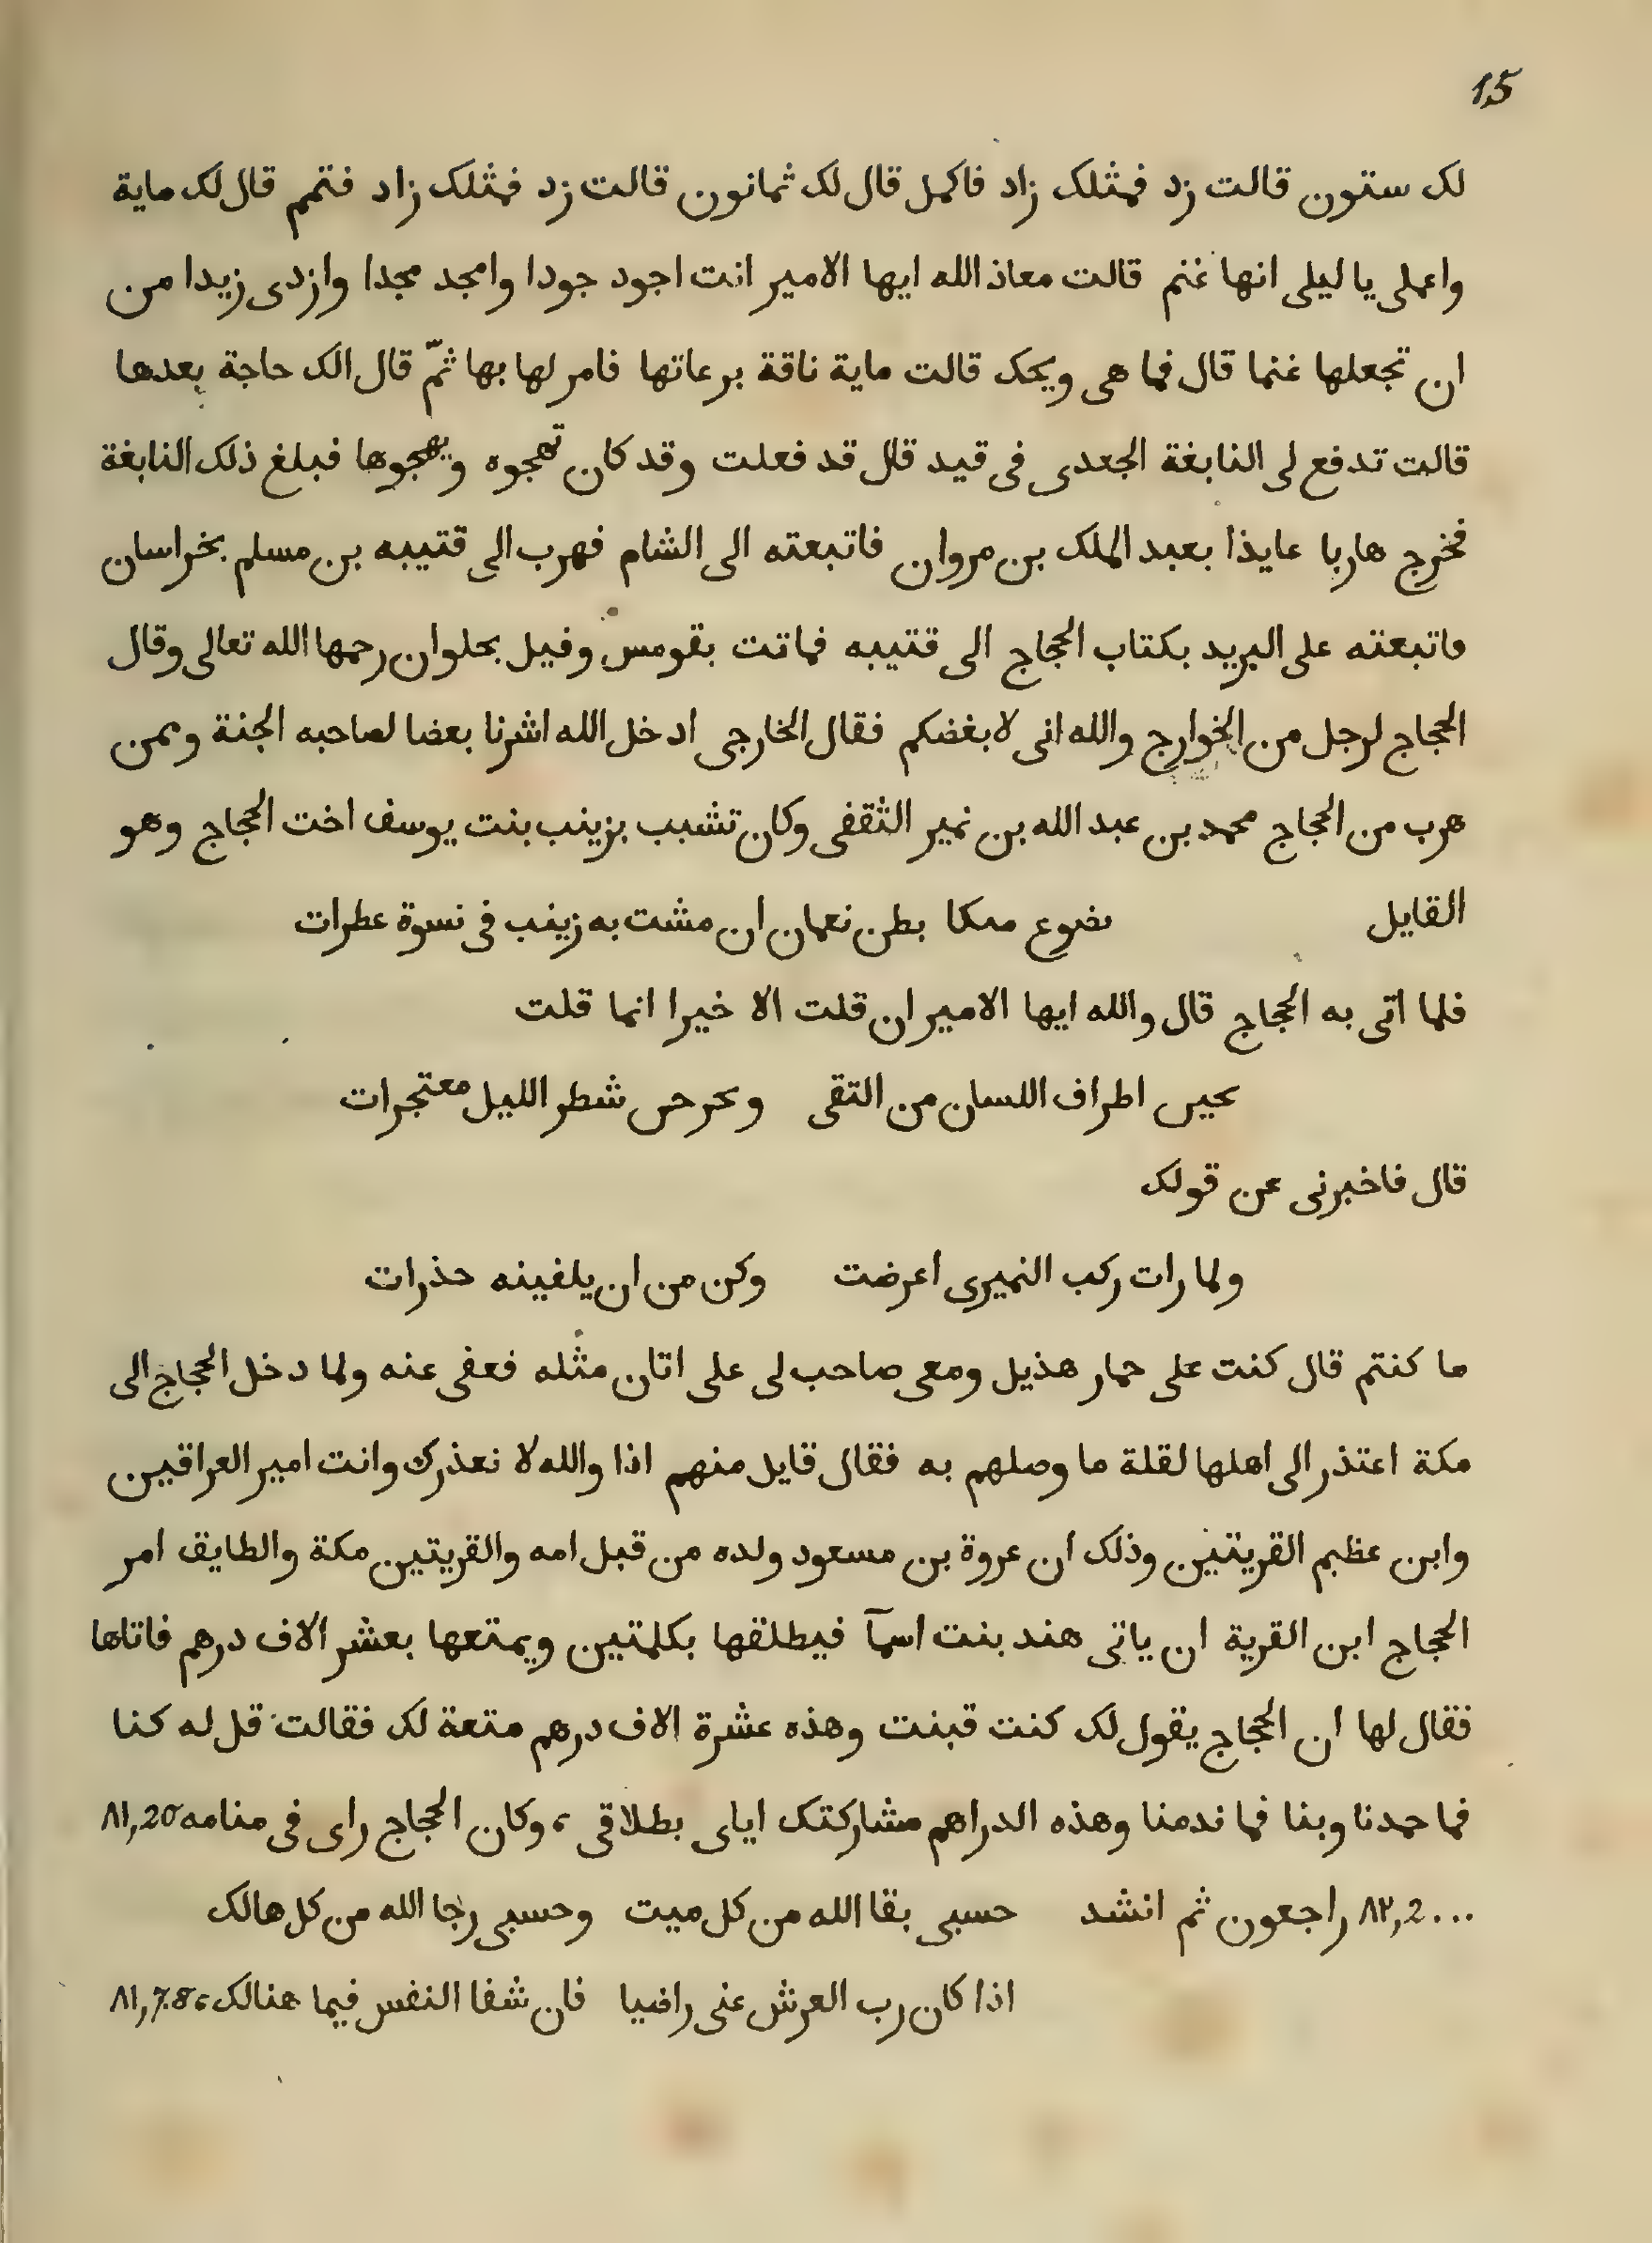 15
لك ستون قالت زد فمثلك زاد فاكمل قال لك ثمانون قالت زد فمثلك زاد فتمم قال لك ماية
واعملى يا ليلى انها غنم قالت معاذ الله ايها الامير انت اجود جودا وامجد مجدا وازدى زيدا من
ان تجعلها غنما قال فما هى ويحك قالت ماية ناقة برعاتها فامر لها بها ثمّ قال الك حاجة بعدها
قالت تدفع لى النابغة الجعدى فى قيد قال قد فعلت وقد كان تهجوه ويهجوها فبلغ ذلك النابغة
فخرج هاربا عايذا بعبد الملك بن مروان فاتبعته الى الشام فهرب الى قتيبه بن مسلم بخراسان
فاتبعته على البريد بكتاب الحجاج الى قتيبه فماتت بقومس وفيل بحلوان رحمها الله تعالى وقال
الحجاج لرجل من الخوارج والله انى لابغضكم فقال الخارجى ادخل الله اشرنا بعضا لصاحبه الجنة وممن
هرب من الحجاج محمد بن عبد الله بن نمير الثقفى وكان تشبب بزينب بنت يوسف اخت الحجاج وهو
القايل تضوع مسكا بطن نعمان ان مشت به زينب فى نسوة عطرات
فلما اتى به الحجاج قال والله ايها الامير ان قلت الا خيرا انما قلت
اطراف اللسان من التقى شطر الليل معتجرات
قال فاخبرنى عن قولك
ولما رات ركب النميرى اعرضت وكن من ان يلفينه حذرات
ما كنتم قال كنت على حمار هذيل ومعى صاحب لى على اتان مثله فعفى عنه ولما دخل الحجاج الى
مكة اعتذر الى اهلها لقلة ما وصلهم به فقال قايل منهم اذا والله لا نعذرك وانت امير العراقين
وابن عظيم القريتين وذلك ان عروة بن مسعود ولده من قبل امه والقريتين مكة والطايف امر
الحجاج ابن القرية ان ياتى هند بنت اسمآ فيطلقها بكلمتين ويمتعها بعشر الاف درهم فاتاها
فقال لها ان الحجاج يقول لك كنت قبنت وهذه عشرة الاف درهم متعة لك فقالت قل له كنا
فما حمدنا وبنا فما ندمنا وهذه الدراهم مشاركتك اياى بطلاقى ، وكان الحجاج راى فى منامه ٨١,20
... ٨٢,2 راجعون ثم انشد حسبى بقا الله من كل ميت وحسبى رجا الله من كل هالك
اذا كان رب العرش عنى راضيا فان شفا النفس فيما هنالك ،